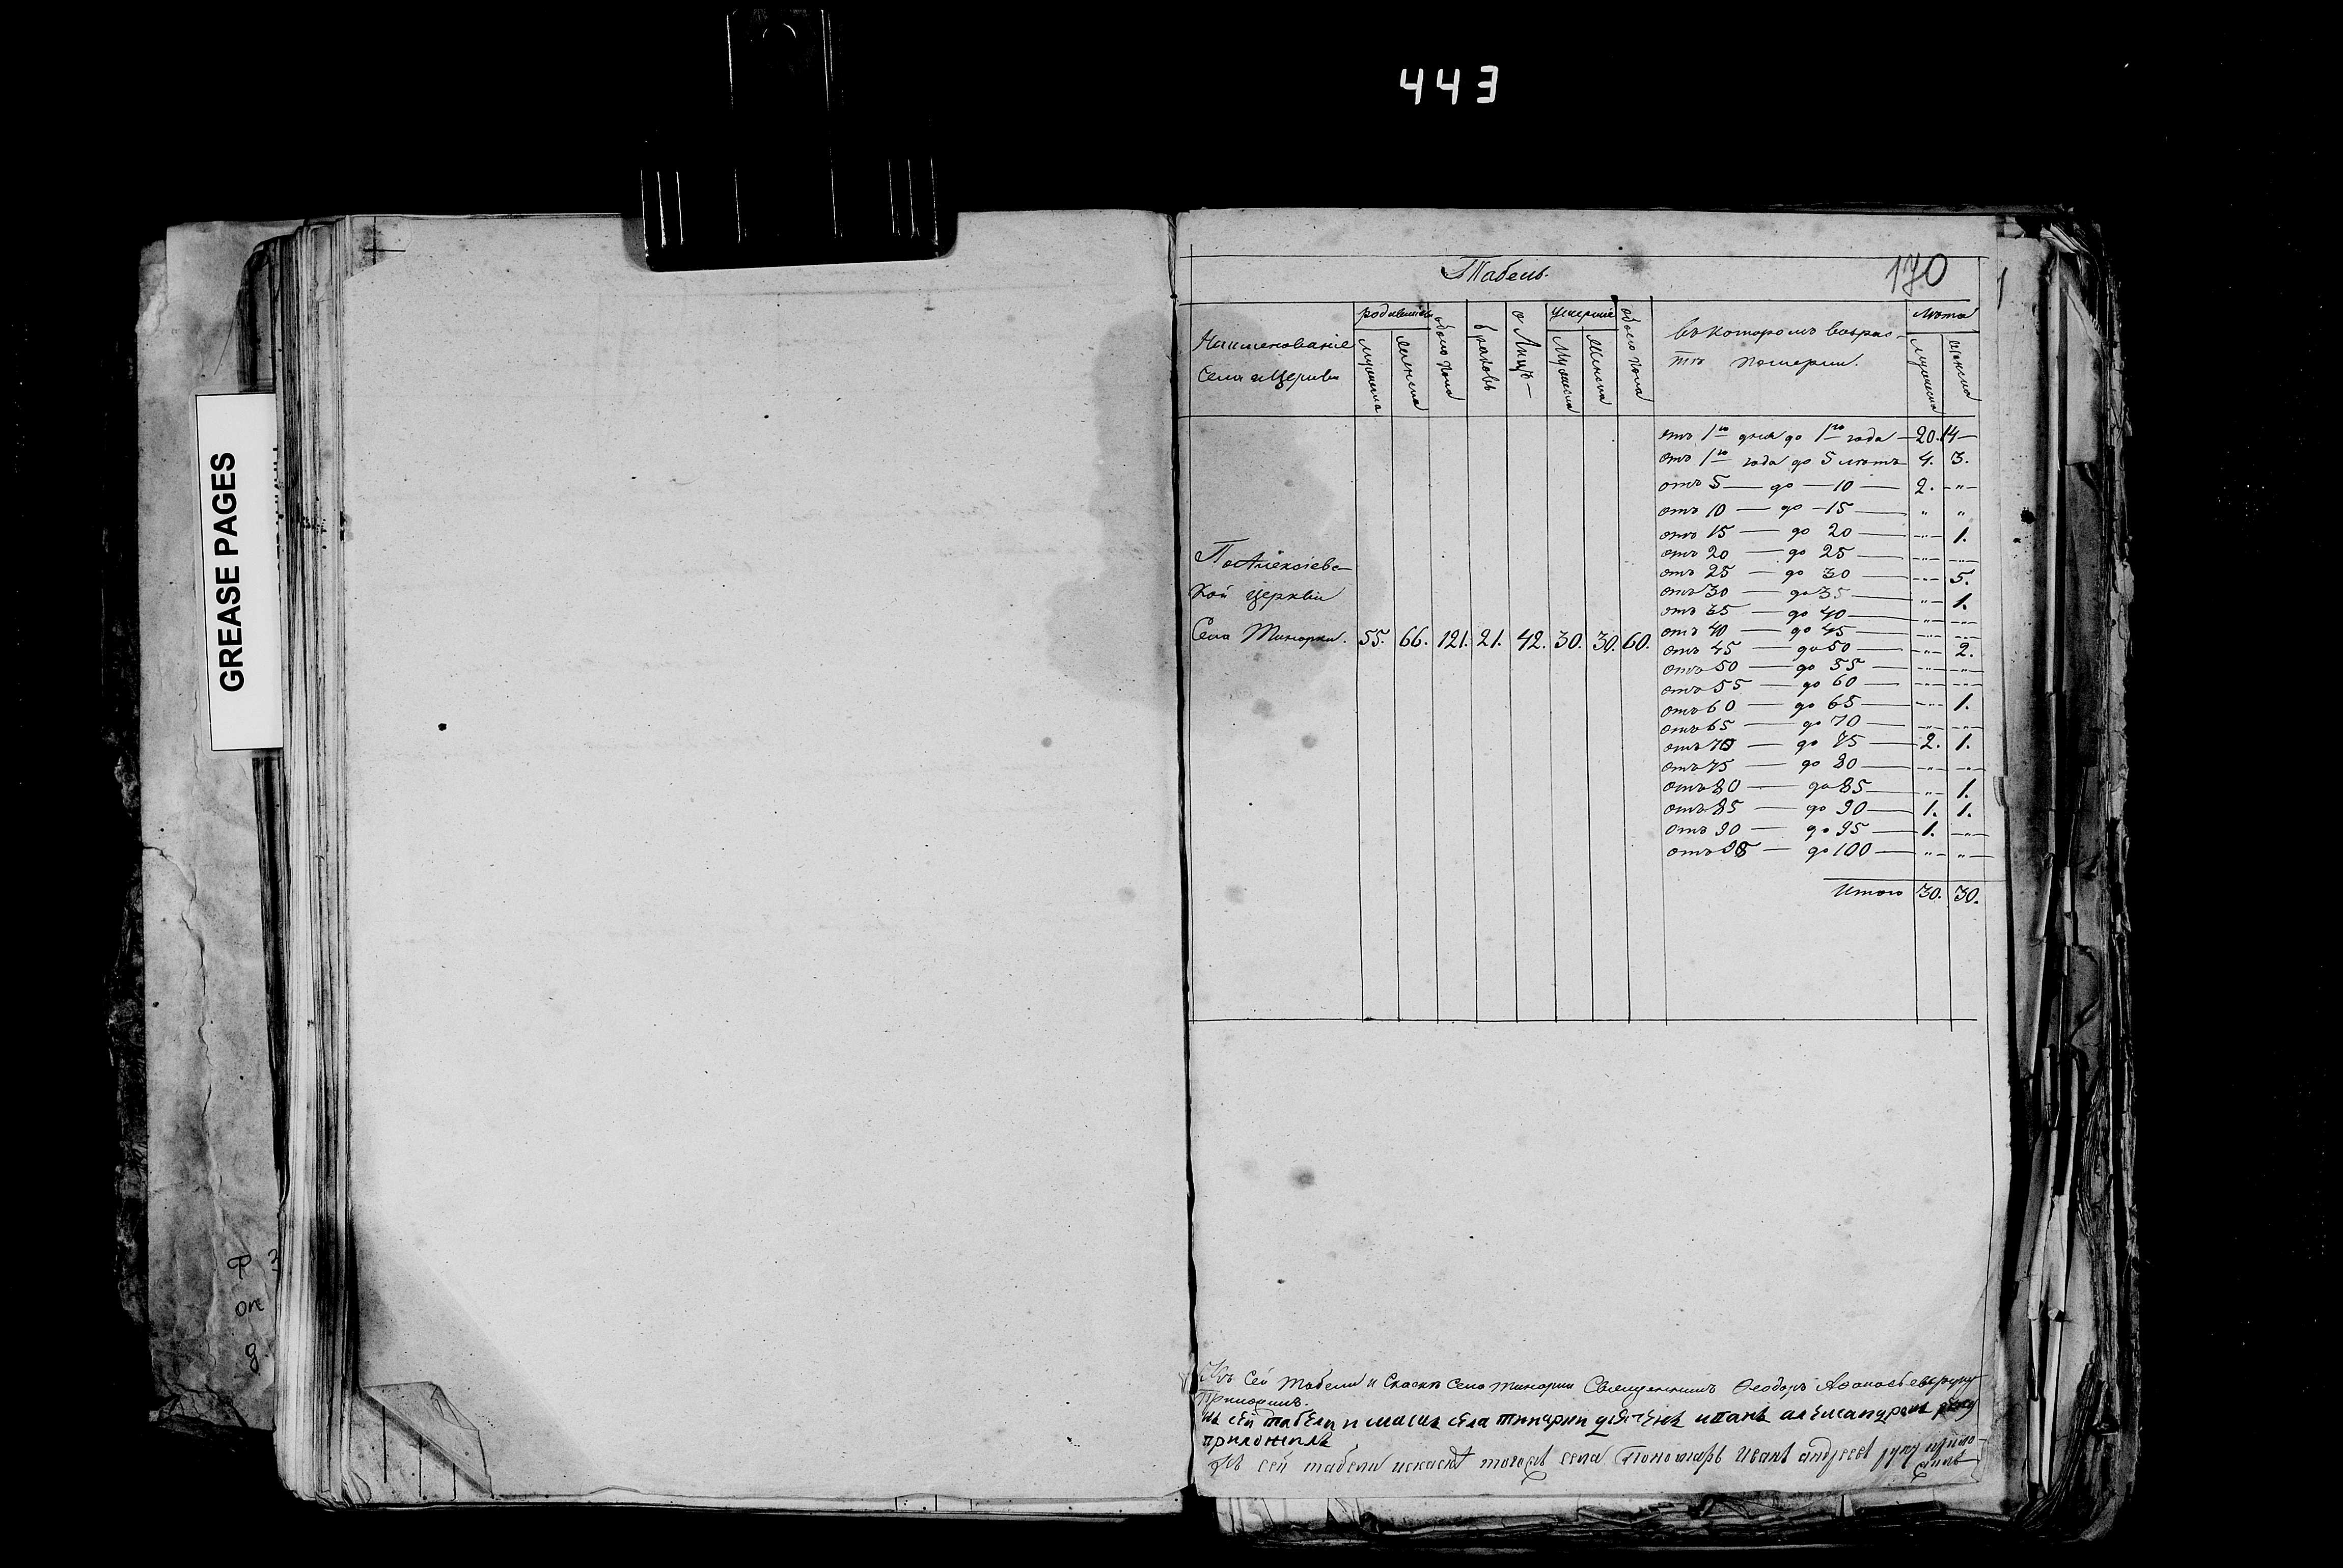 443
GREASE PAGES
170
Табель.
Наименованіе
Села и Церкви
родившихся
мужеска
женска
обоего пола
браковъ
Лицъ
умершіе
Мужеска
Женска
обоего пола
въ которомъ возрас-
тѣ померли.
лѣта
мужеска
женска
отъ 1го дня до 1го года — 20. 14 —
отъ 1го года до 5 лѣтъ 4. 3.
отъ 5 — до — 10 — 2. — „ —
отъ 10 — до — 15 — „ „
отъ 15 — до 20 — „ — 1.
отъ 20 — до 25 — „ — „ —
отъ 25 — до 30 — „ — 5.
отъ 30 — до 35 — „ — 1.
отъ 35 — до 40 — „ — „ —
отъ 40 — до 45 — „ — „ —
отъ 45 — до 50 — „ — 2.
отъ 50 — до 55 — „ — „ —
отъ 55 — до 60 — „ — „ —
отъ 60 — до 65 — „ — 1.
отъ 65 — до 70 — „ — „ —
отъ 70 — до 75 — 2. 1.
отъ 75 — до 80 — „ — „ —
отъ 80 — до 85 — „ — 1.
отъ 85 — до 90 — 1. 1.
отъ 90 — до 95 — 1. — „ —
отъ 95 — до 100 — „ — „ —
Итого 30. 30.
По
кой церкви
Села 55. 66. 121. 21. 42. 30. 30. 60.
Къ сей табели и сказкѣ села Священникъ Ѳеодоръ руку
приложилъ.
къ сей табели и села александровъ руку
приложилъ
Къ сей табели и сказкѣ тогожъ села Пономарь Иванъ андреевъ руку прило-
жилъ